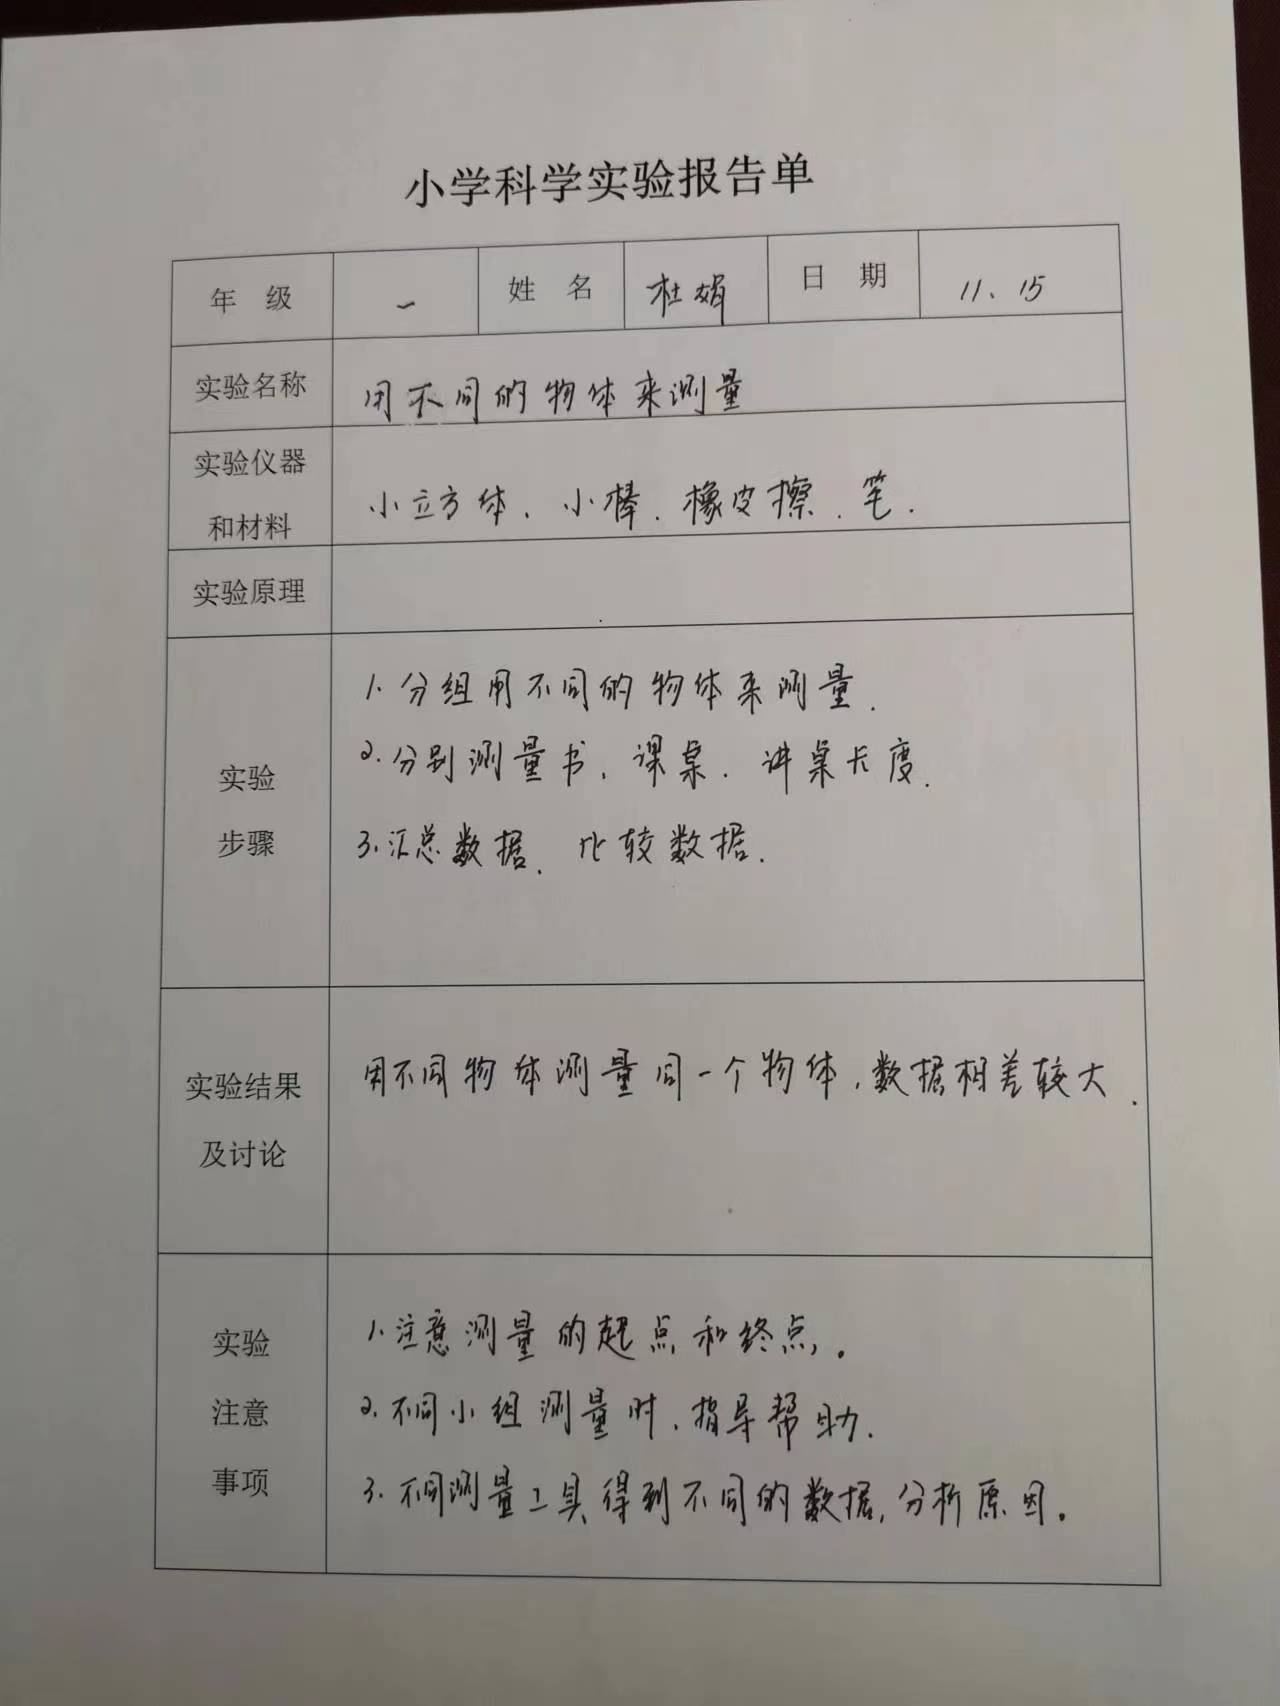 小学科学实验报告单
年 级 一 姓 名 杜娟 日 期 11、15
实验名称 用不同的物体来测量
实验仪器
和材料
小立方体、小棒、橡皮擦、笔.
实验原理
实验
步骤
1.分组用不同的物体来测量.
2.分别测量书、课桌、讲桌长度.
3.汇总数据、比较数据.
实验结果
及讨论
用不同物体测量同一个物体,数据相差较大.
实验
注意
事项
1.注意测量的起点和终点。
2.不同小组测量时,指导帮助.
3.不同测量工具得到不同的数据,分析原因。